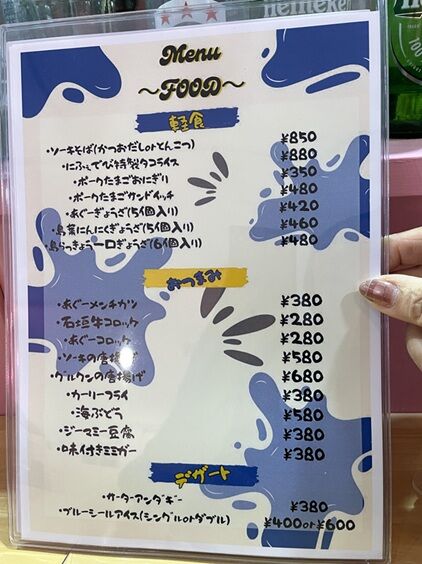 Heineken
Menu
〜FOOD〜
軽食
・ソーキそば(かつおだしorとんこつ) ¥850
・にふぇでび特製タコライス ¥880
・ポークたまごおにぎり ¥350
・ポークたまごサンドイッチ ¥480
・あぐーぎょうざ(5個入り) ¥420
・島菜にんにくぎょうざ(5個入り) ¥460
・島らっきょう一口ぎょうざ(6個入り) ¥480
おつまみ
・あぐーメンチカツ ¥380
・石垣牛コロッケ ¥280
・あぐーコロッケ ¥280
・ソーキの唐揚げ ¥580
・グルクンの唐揚げ ¥680
・カーリーフライ ¥380
・海ぶどう ¥580
・ジーマミー豆腐 ¥380
・味付きミミガー ¥380
デザート
・サーターアンダギー ¥380
・ブルーシールアイス(シングルorダブル) ¥400or¥600